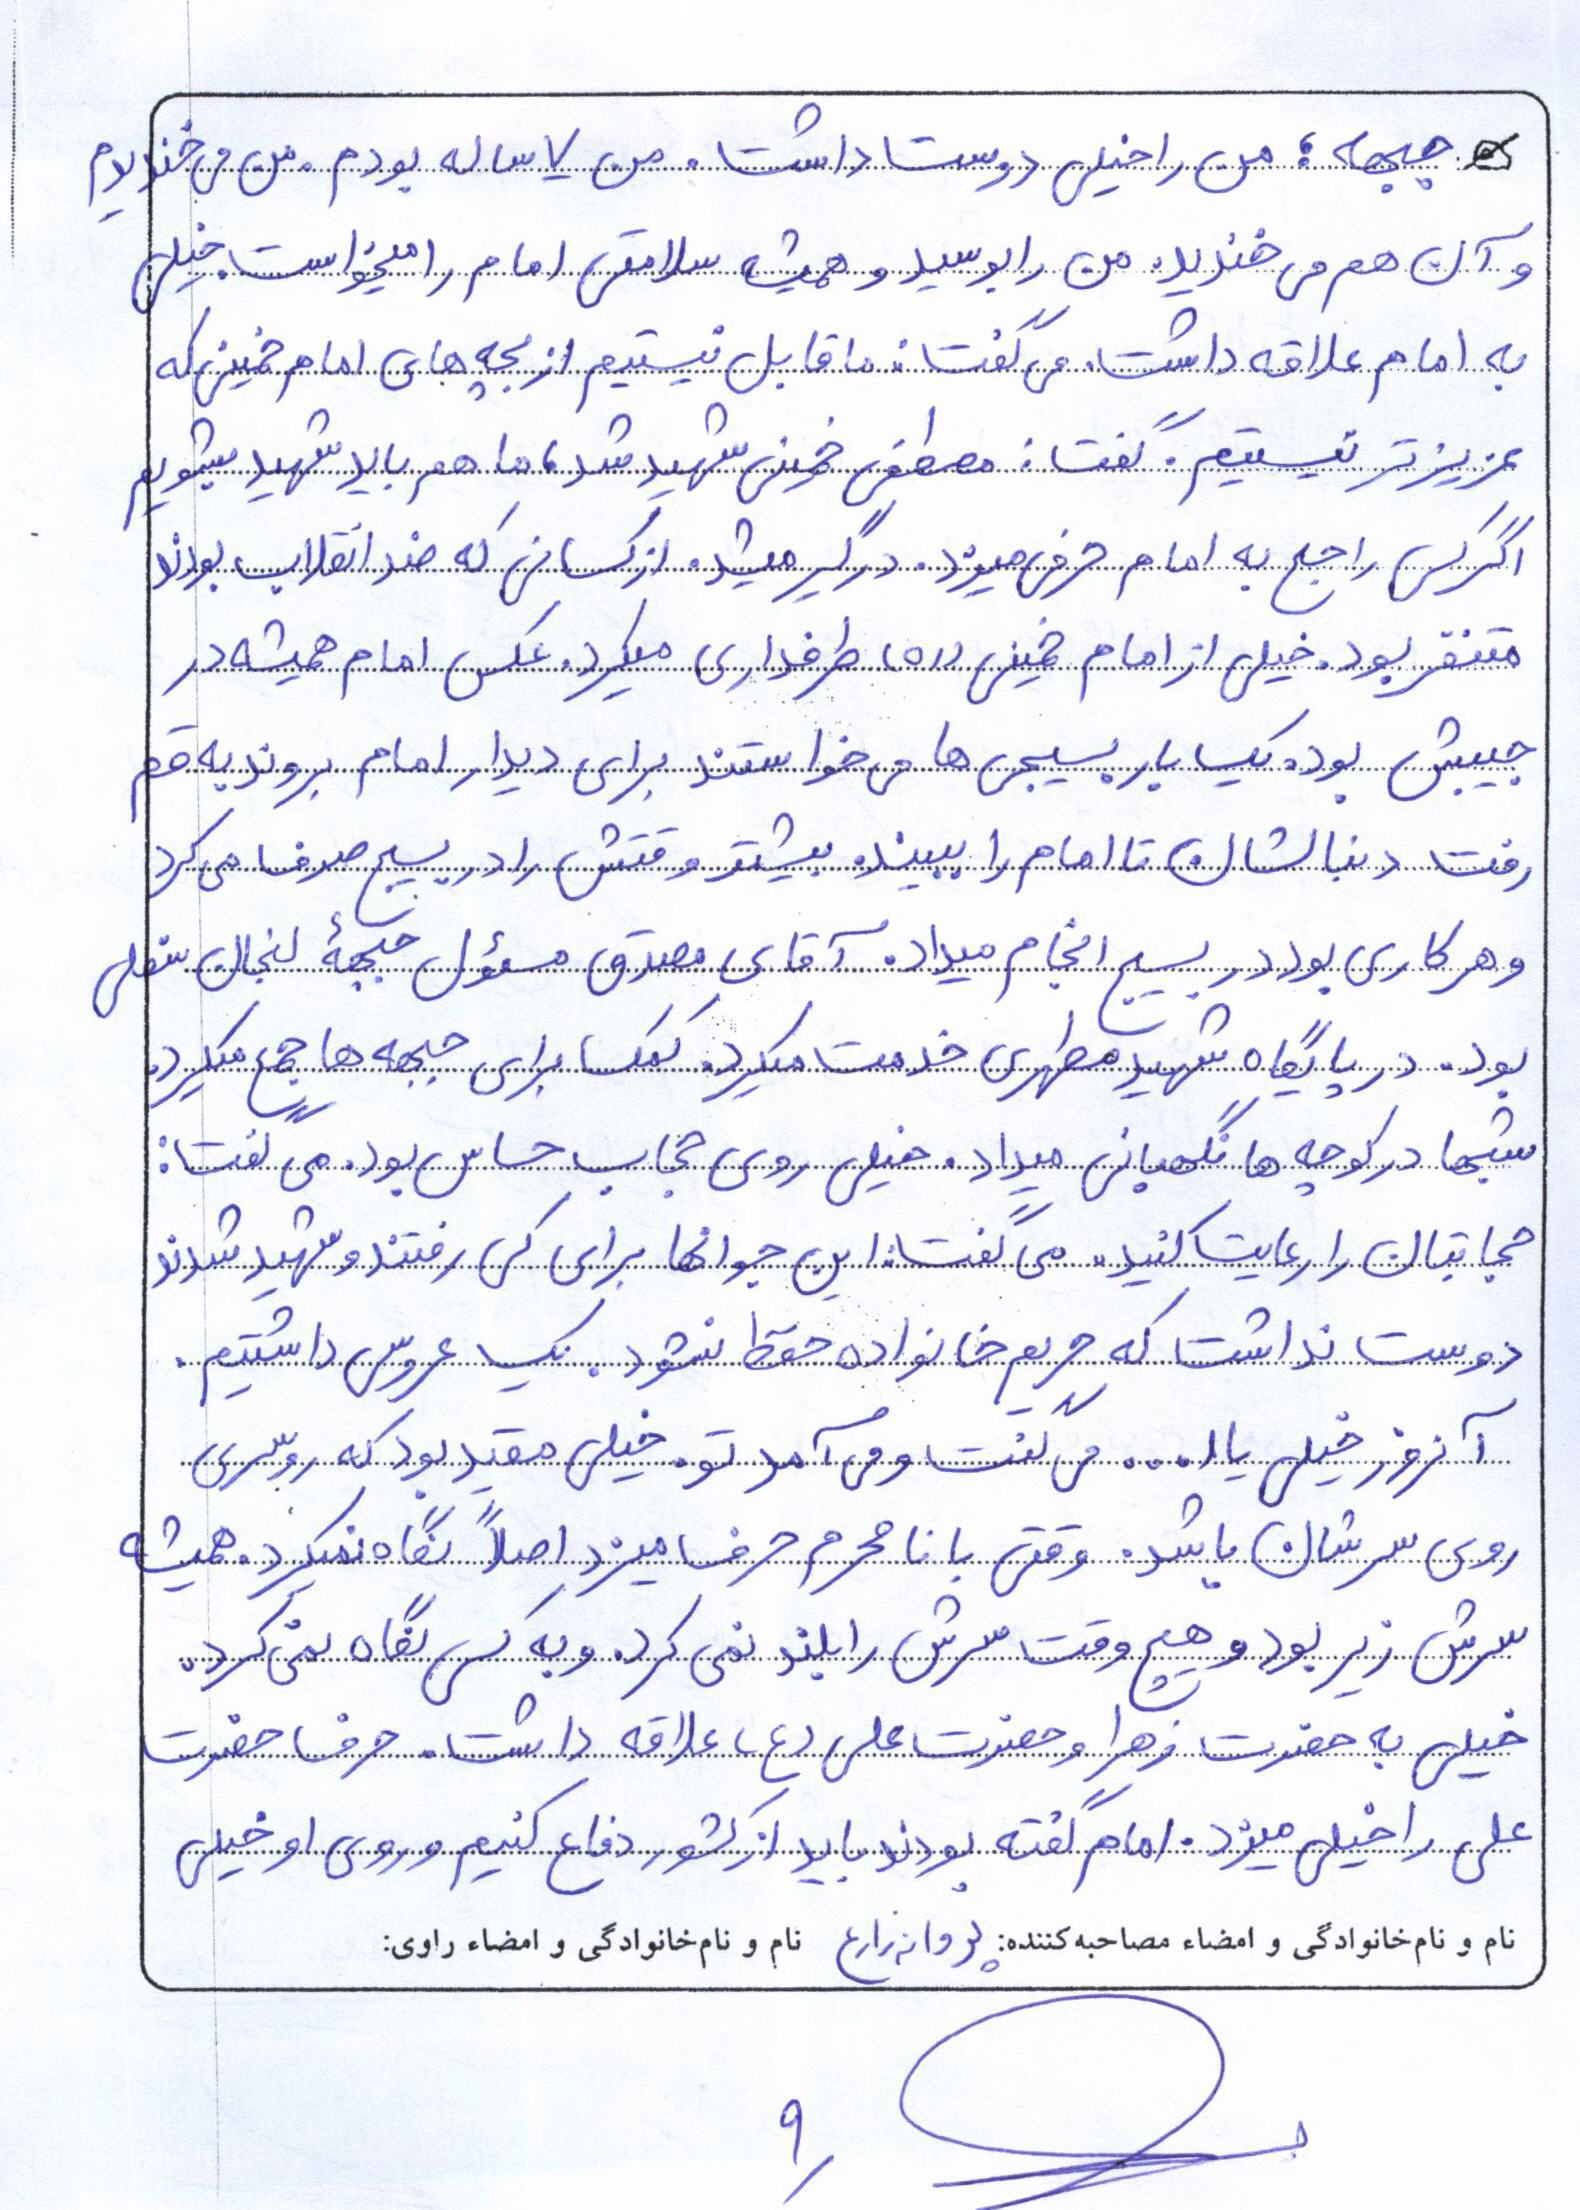 جبهه: من را خیلی دوست داشت. من ۷ ساله بودم. من می خندیدم
و آن هم می خندید. من را بوسید و همیشه سلامتی امام را میخواست. خیلی
به امام علاقه داشت. می گفت: ما قابل نیستیم از بچه های امام خمینی که
عزیزتر نیستیم. گفت: مصطفی خمینی شهید شد، ما هم باید شهید بشویم
اگر کسی راجع به امام حرفی میزد. درگیر میشد. از کسانی که ضد انقلاب بودند
متنفر بود. خیلی از امام خمینی (ره) طرفداری میکرد. عکس امام همیشه در
جیبش بود. یک بار بسیجی ها می خواستند برای دیدار امام بروند به قم
رفت دنبالشان تا امام را ببیند. بیشتر وقتش را در بسیج صرف می کرد
و هر کاری بود در بسیج انجام میداد. آقای مصدق مسؤل جبههٔ لنجان سفلی
بود. در پایگاه شهید مطهری خدمت میکرد. کمک برای جبهه ها جمع میکرد.
شبها در کوچه ها نگهبانی میداد. خیلی روی حجاب حساس بود. می گفت:
حجابتان را رعایت کنید. می گفت: این جوانها برای کی رفتند و شهید شدند
دوست نداشت که حریم خانواده حفظ نشود. یک عروس داشتیم.
آنروز خیلی یاا... می گفت و می آمد تو. خیلی مقید بود که روسری
روی سرشان باشد. وقتی با نامحرم حرف میزد اصلاً نگاه نمیکرد. همیشه
سرش زیر بود و هیچ وقت سرش را بلند نمی کرد. و به کسی نگاه نمی کرد.
خیلی به حضرت زهرا و حضرت علی (ع) علاقه داشت. حرف حضرت
علی را خیلی میزد. امام گفته بودند باید از کشور دفاع کنیم و روی او خیلی
نام و نام‌خانوادگی و امضاء مصاحبه‌کننده: پروانه زارع نام و نام‌خانوادگی و امضاء راوی:
۹